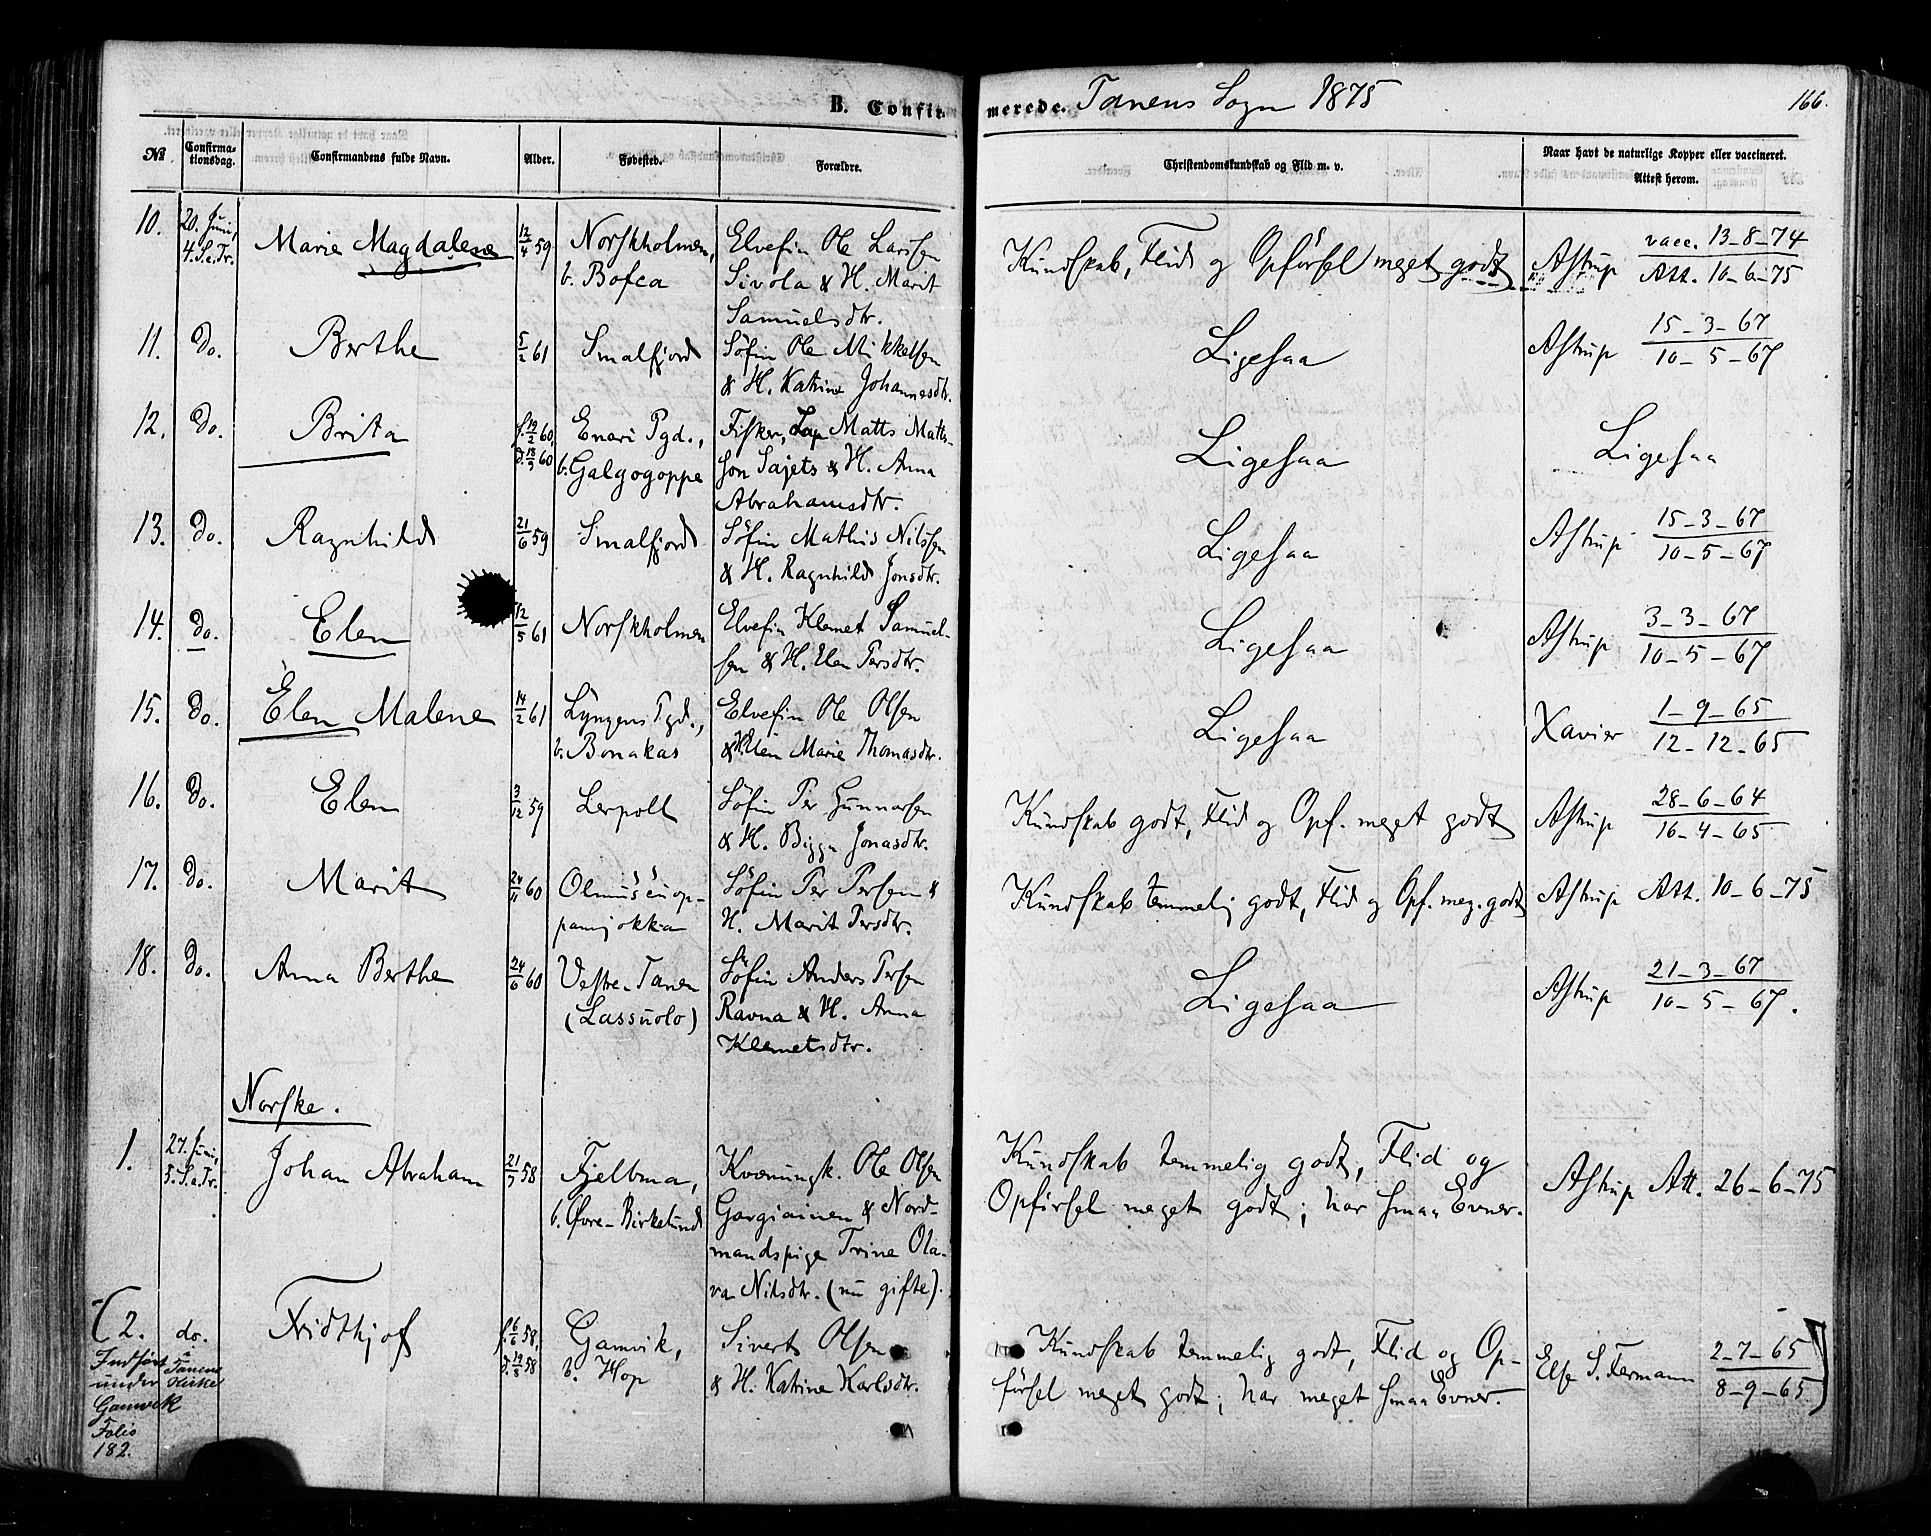 B. Confirmerede. Tanens Sogn 1875
166.
No. Confirmationsdag. Confirmandens fulde Navn. Alder. Fødested. Forældre. Christendomskundskab og Flid m. v. Naar havt de naturlige Kopper eller vaccineret. Attest herom.
10. 20. Juni, 4. S. e. Tr. Marie Magdalene 12/4 59 Norskholmen, b. Bofca Elvefin Ole Larsen Sivola & H. Marit Samuelsdtr. Kundskab, Flid og Opførsel meget godt Astrup vacc. 13-8-74 Att. 10-6-75
11. do. Berthe 5/2 61 Smalfjord Söfin Ole Mikkelsen & H. Katrine Johannesdtr. Ligesaa Astrup 15-3-67 10-5-67
12. do. Brita f. 19/2 60, d. 18/3 60 Enari Pgd., b. Galgogoppe Fisker, Lap Matts Mattsson Sajets & H. Anna Abrahamsdtr. Ligesaa Ligesaa
13. do. Ragnhild 21/6 59 Smalfjord Söfin Mathis Nilssen & H. Ragnhild Jonsdtr. Ligesaa Astrup 15-3-67 10-5-67
14. do. Elen 12/5 61 Norskholmen Elvefin Klemet Samuelsen & H. Elen Persdtr. Ligesaa Astrup 3-3-67 10-5-67
15. do. Elen Malene 14/2 61 Lyngens Pgd., b. Bonakas Elvefin Ole Olsen & H. Elen Marie Thomasdtr. Ligesaa Xavier 1-9-65 12-12-65
16. do. Elen 3/12 59 Lerpoll Söfin Per Gunnarsen & H. Bigga Jonasdtr. Kundskab godt, Flid og Opf. meget godt Astrup 28-6-64 16-4-65
17. do. Marit 24/11 60 Söfin Per Persen & H. Marit Persdtr. Kundskab temmelig godt, Flid og Opf. meg. godt Astrup Att. 10-6-75
18. do. Anna Berthe 24/6 60 Vestre-Tanen (Lassuolo) Söfin Anders Persen Ravna & H. Anna Klemetsdtr. Ligesaa Astrup 21-3-67 10-5-67.
Norske.
1. 27. Juni, 5. S. e. Tr. Johan Abraham 21/7 58 Fjelbma, b. Øvre-Birkelund Kvænungk. Ole Olsen Gargiainen & Nordmandspige Trine Olava Nilsdtr. (nu gifte). Kundskab temmelig godt, Flid og Opførsel meget godt; har smaa Evner. Astrup Att. 26-6-75
(2. do. Fridthjof f. 6/6 58, d. 19/8 58 Gamvik, b. Hop Sivert Olsen & H. Katrine Karlsdtr. Kundskab temmelig godt, Flid og Opførsel meget godt; har meget smaa Evner. Else S. Fermann 2-7-65 8-9-65)
Indført i Tanens
under Kirke
Gamvik
Folio
182.